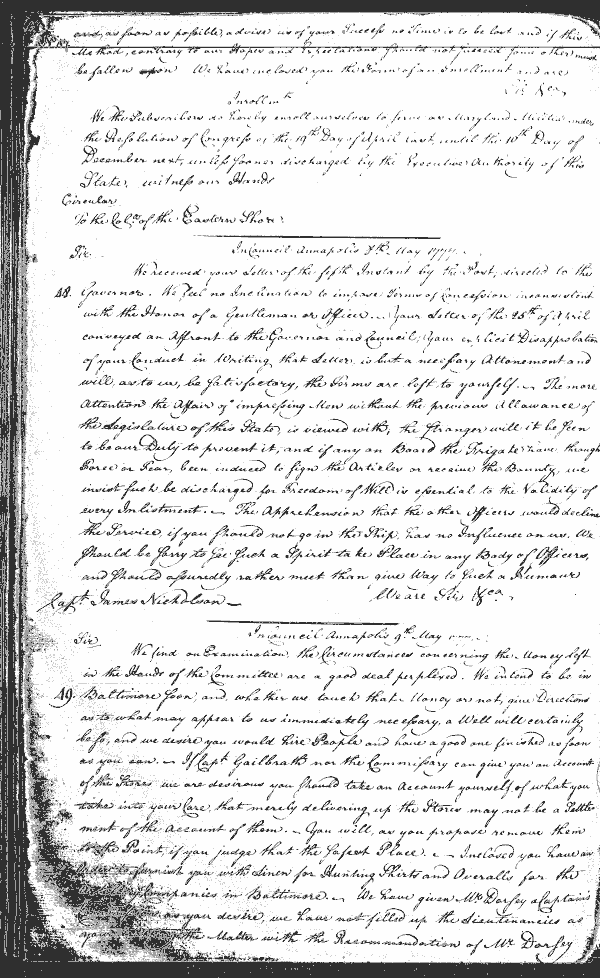 and, as soon as possible, advise us of your Success no Time is to be lost and if this
Method, contrary to our Hopes and Expectations should not succeed some other must
be fallen upon We have inclosed you the Form of an Enrollment and are
Sir &ca
Enrollmt
We the Subscribers do hereby enroll ourselves to serve as Maryland Militia under
the Resolution of Congress of the 19th Day of April last, until the 10th Day of
December next, unless sooner discharged by the Executive Authority of this
State, witness our Hands
Circular
To the Cols of the Eastern Shore
In Council Annapolis 8th May 1777.
Sir
We received your Letter of the fifth Instant by the Post, directed to the
48. Governor. We feel no Inclination to impose Terms of Concession inconsistent
with the Honor of a Gentleman or Officer. Your Letter of the 26th of April
conveyed an Affront to the Governor and Council; Your explicit Disapprobation
of your Conduct in Writing that Letter, is but a necessary Attonement and
will, as to us, be satisfactory, the Terms are left to yourself. The more
Attention the Affair of impressing Men without the previous Allowance of
the Legislature of this State, is viewed with, the stranger will it be seen
to be our Duty to prevent it, and if any on Board the Frigate have through
Force or Fear, been induced to sign the Articles or receive the Bounty, we
insist such be discharged for Freedom of Will is essential to the Validity of
every Inlistment. The Apprehension that the other Officers would decline
the Service, if you should not go in the Ship, has no Influence on us. We
should be sorry to see such a Spirit take Place in any Body of Officers,
and should assuredly rather meet than give Way to such a Humour
We are Sir &ca
Capt James Nicholson
In Council Annapolis 9th May
Sir
We find on Examination, the Circumstances concerning the Money left
in the Hands of the Committee are a good deal perplexed. We intend to be in
49. Baltimore soon and, whether we touch that Money or not, give Directions
as to what may appear to us immediately necessary, a Well will certainly
be so, and we desire you would hire People and have a good one finished as soon
as you can. If Capt Gailbrath nor the Commissary can give you an Account
of the Stores we are desirous you should take an Account yourself of what you
take into your Care, that merely delivering up the Stores may not be a Settle
ment of the Account of them. You will, as you propose remove them
to the Point, if you judge that the safest Place. Inclosed you have an
Order to furnish you with Linen for Hunting Shirts and Overalls for the
Companies in Baltimore. We have given Mr Dorsey a Captain's
as you desire, we have not filled up the Lieutenancies as
the Matter with the Recommendation of Mr Dorsey